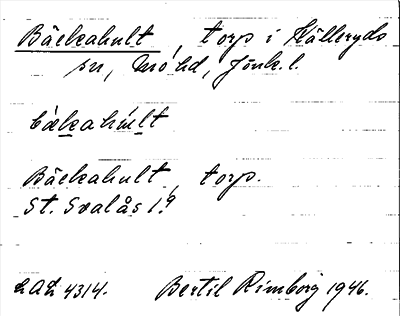 Bäckahult, torp i Kålleryds
sn, Mo hd, Jönk. l.
bækahult
Bäckahult, torp.
St. Svalås 1:9
LAL 4314. Bertil Rimborg 1946.